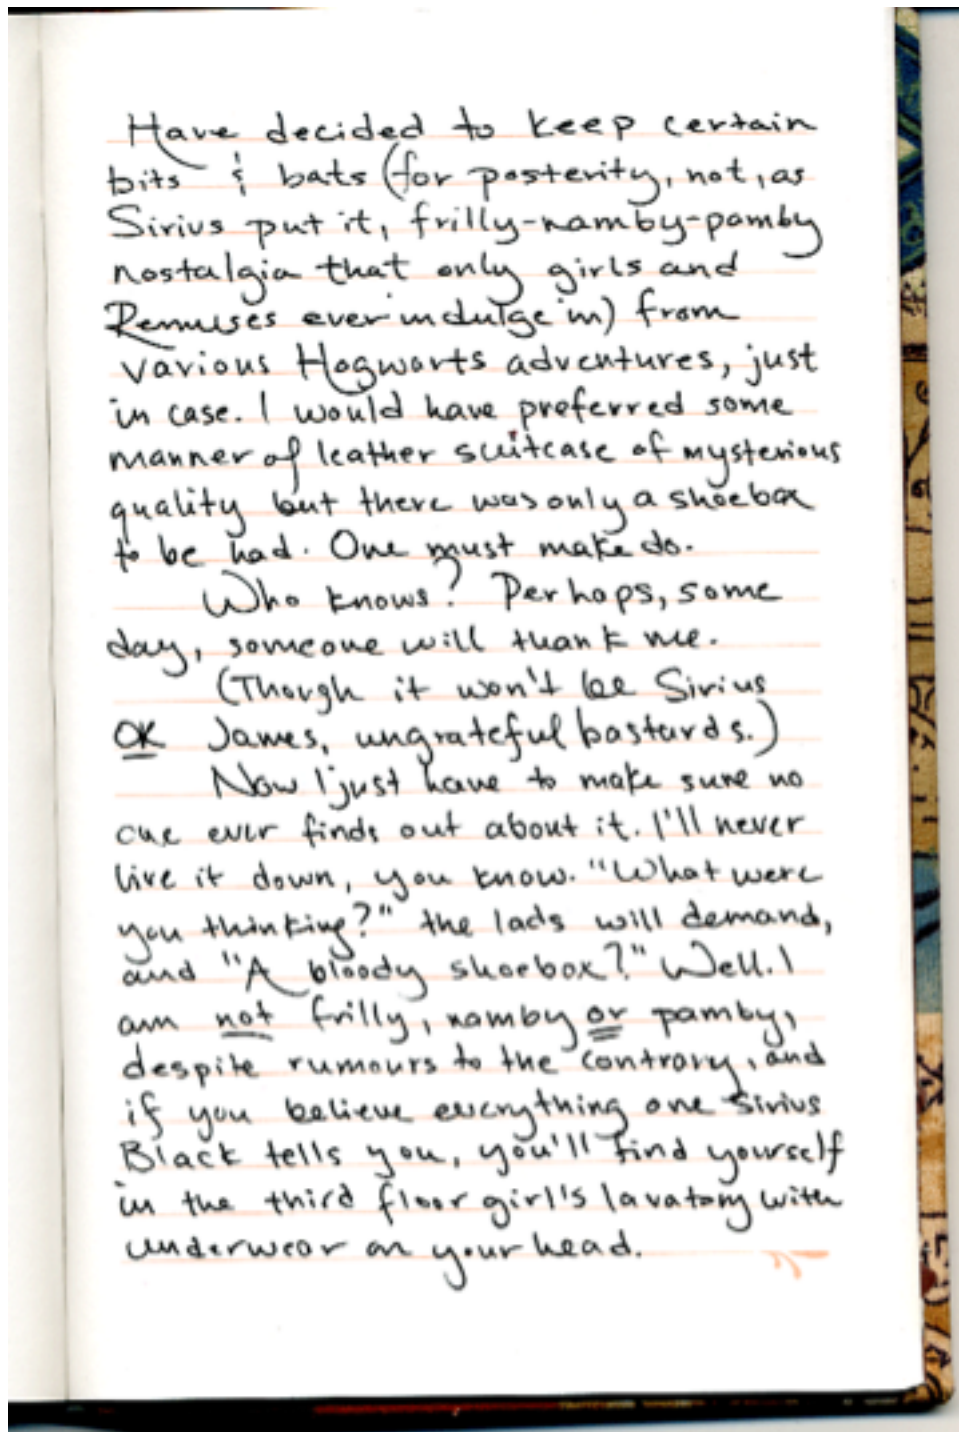 Have decided to keep certain
bits & bats (for posterity, not, as
Sirius put it, frilly-namby-pamby
nostalgia that only girls and
Remuses ever indulge in) from
various Hogwarts adventures, just
in case. I would have preferred some
manner of leather suitcase of mysterious
quality but there was only a shoebox
to be had. One must make do.
Who knows? Perhaps, some
day, someone will thank me.
(Though it won't be Sirius
OR James, ungrateful bastards.)
Now I just have to make sure no
one ever finds out about it. I'll never
live it down, you know. "What were
you thinking?" the lads will demand,
and "A bloody shoebox?" Well. I
am not frilly, namby or pamby,
despite rumours to the contrary, and
if you believe everything one Sirius
Black tells you, you'll find yourself
in the third floor girl's lavatory with
underwear on your head.